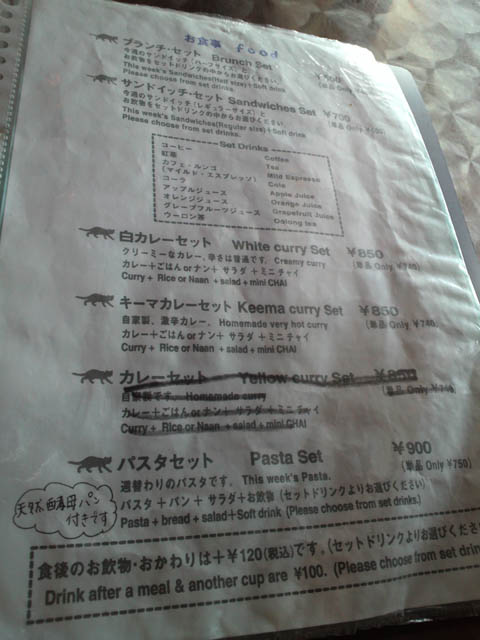 お食事 food
ブランチ・セット Brunch Set
今週のサンドイッチ(ハーフサイズ)と
お飲物をセットドリンクの中からお選びください。
This week's Sandwiches(Half size)+Soft drink
Please choose from set drinks.
サンドイッチ・セット Sandwiches Set ¥700
今週のサンドイッチ(レギュラーサイズ)と
お飲物をセットドリンクの中からお選びください。
This week's Sandwiches(Regular size)+Soft drink
Please choose from set drinks.
Set Drinks
コーヒー Coffee
紅茶 Tea
カフェ・ルンゴ
(マイルド・エスプレッソ) Mild Espresso
コーラ Cola
アップルジュース Apple Juice
オレンジジュース Orange Juice
グレープフルーツジュース Grapefruit Juice
ウーロン茶 Oolong tea
白カレーセット White curry Set ¥850
クリーミーなカレー。辛さは普通です。 Creamy curry (単品 Only ¥740)
カレー+ごはんorナン+ サラダ +ミニチャイ
Curry+ Rice or Naan +salad+mini CHAI
キーマカレーセット Keema curry Set ¥850
自家製、激辛カレー。 Homemade very hot curry (単品 Only ¥740)
カレー+ごはんorナン+ サラダ +ミニチャイ
Curry+ Rice or Naan +salad+mini CHAI
カレーセット Yellow curry Set ¥850
自家製です。 Homemade curry (単品 Only ¥740)
カレー+ごはんorナン+ サラダ +ミニチャイ
Curry+ Rice or Naan +salad+mini CHAI
パスタセット Pasta Set ¥900
週替わりのパスタです。 This week's Pasta. (単品 Only ¥750)
パスタ+パン+ サラダ+お飲物 (セットドリンクよりお選びください)
Pasta+bread+salad+Soft drink (Please choose from set drinks.)
天然酵母パン
付きです
食後のお飲物・おかわりは+¥120(税込)です。(セットドリンクよりお選びくださ
Drink after a meal & another cup are ¥100. (Please choose from set drin